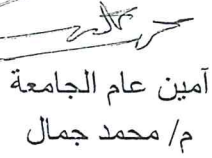 آمين عام الجامعة
م/ محمد جمال